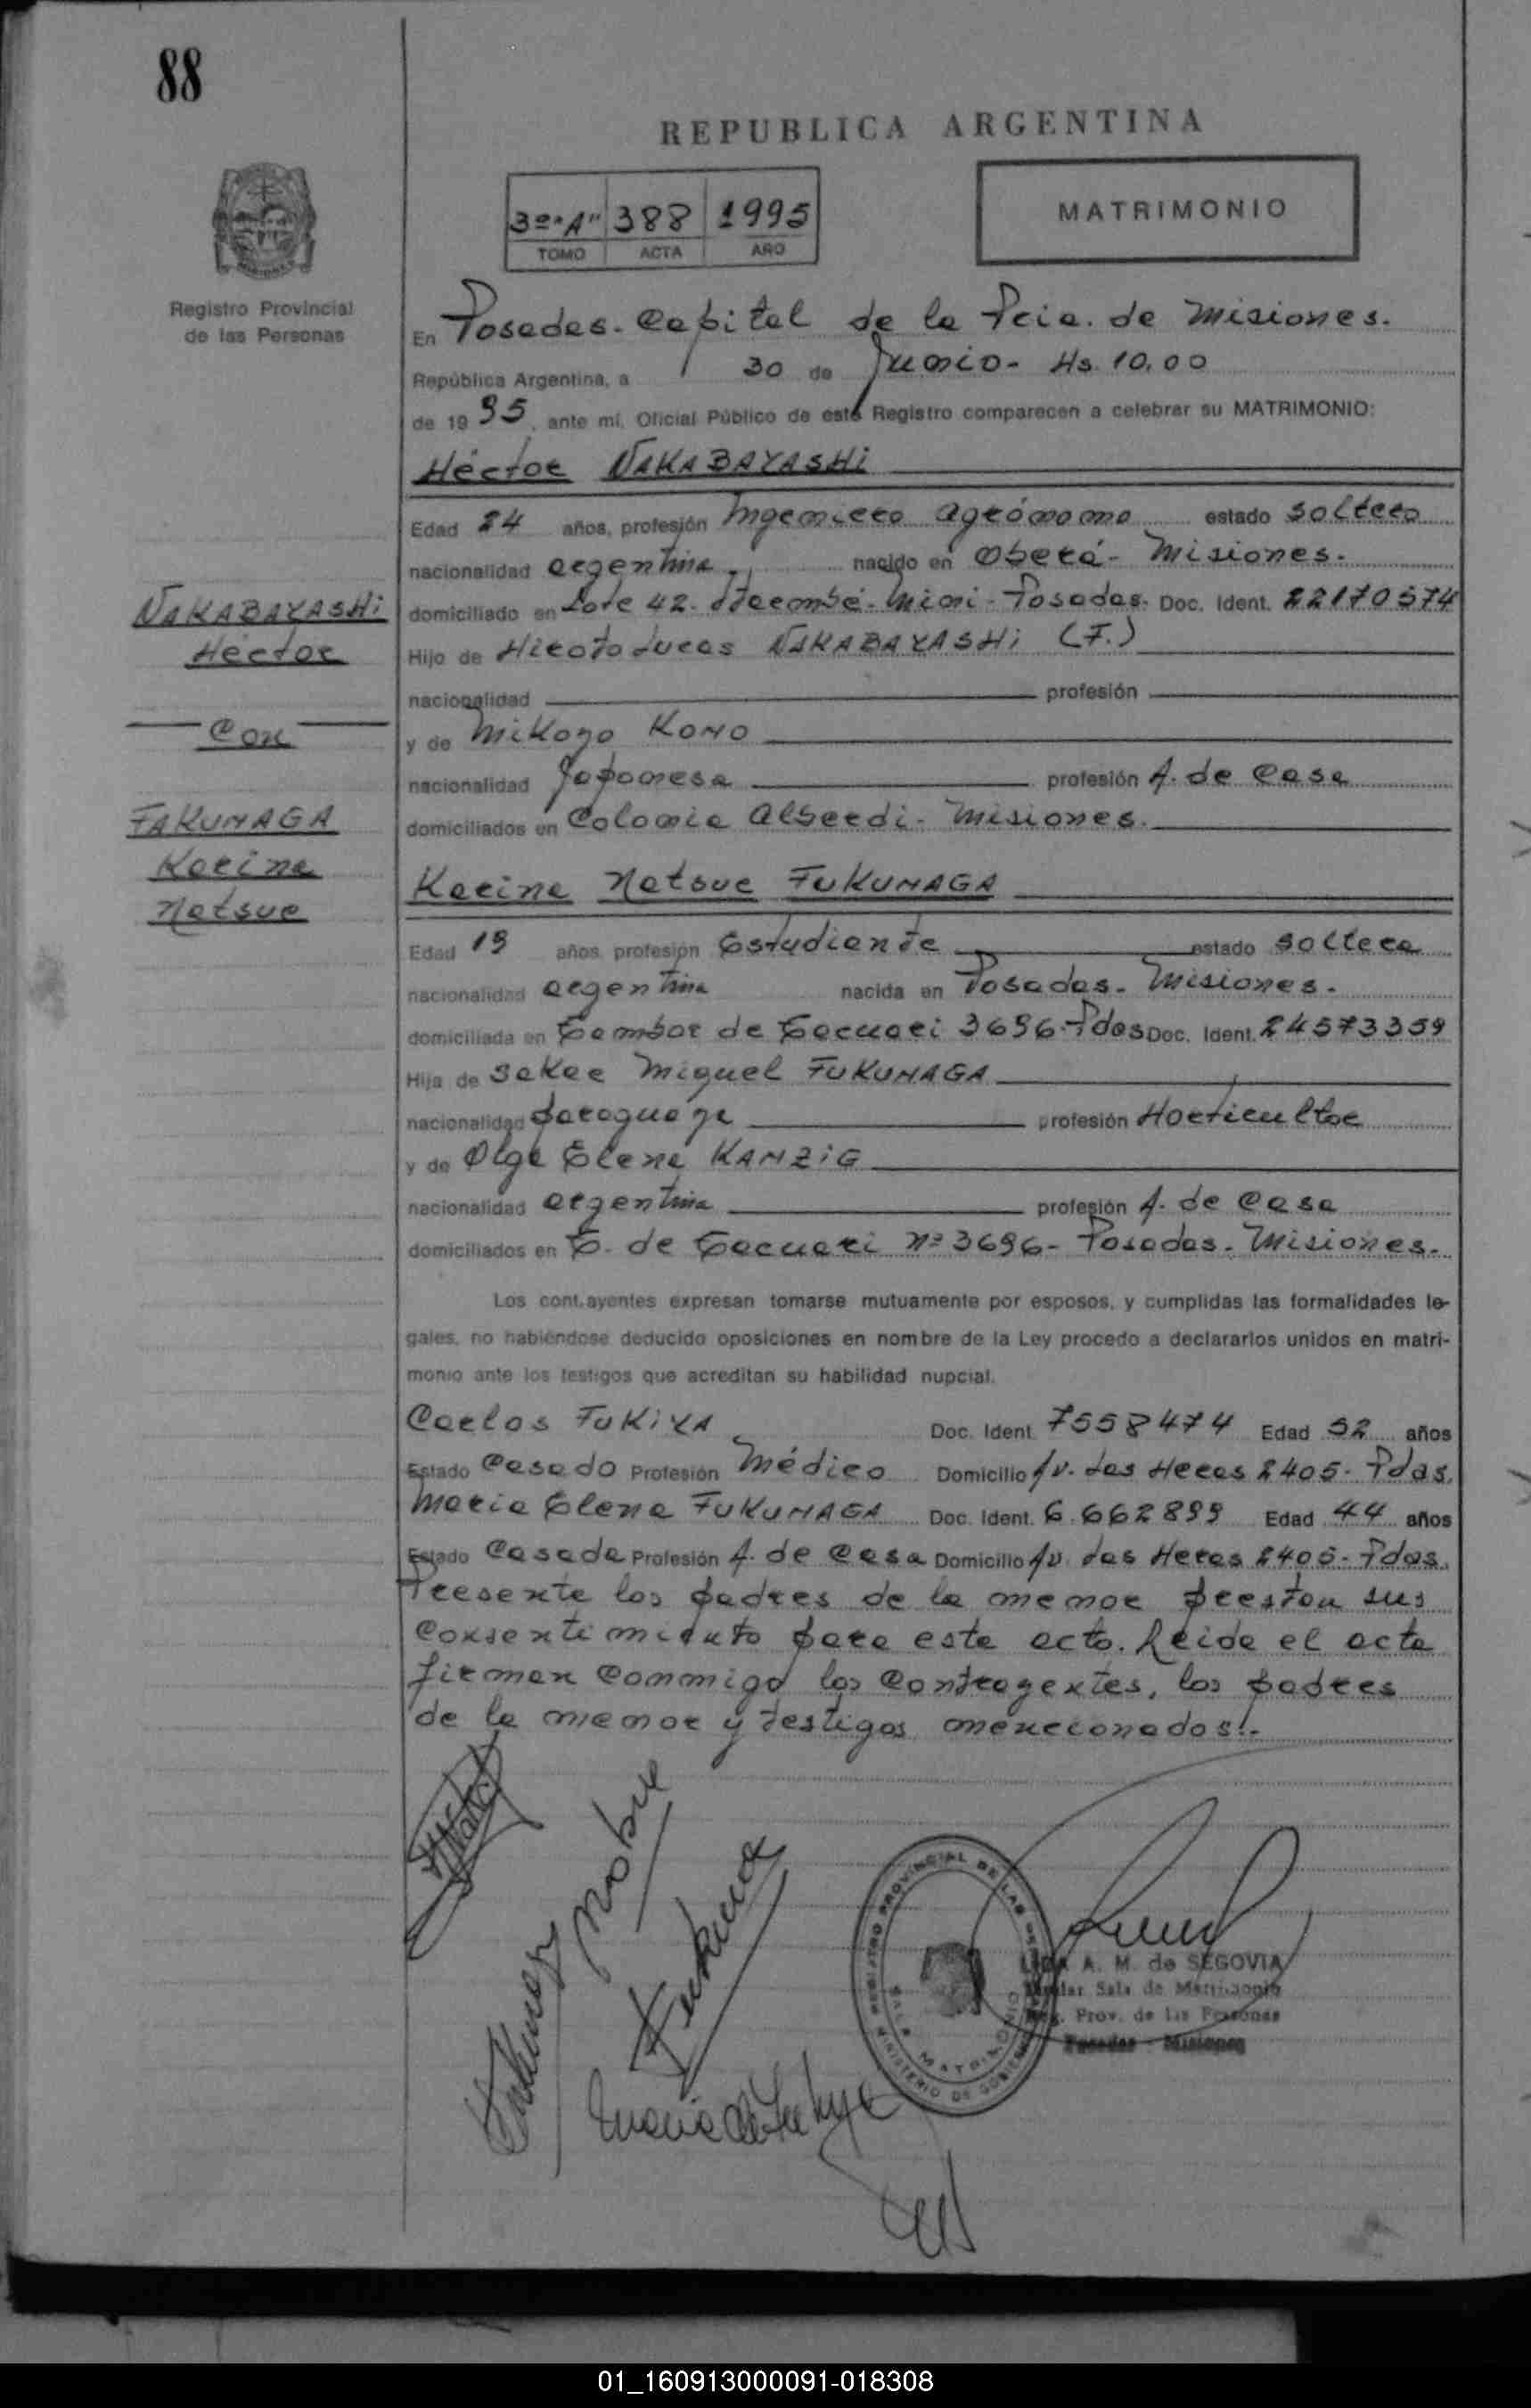 88
REPUBLICA ARGENTINA
3º "A" 388 1995
TOMO ACTA AÑO
MATRIMONIO
Registro Provincial
de las Personas
En Posadas. Capital de la Pcia. de Misiones.
República Argentina, a 30 de Junio - Hs. 10,00
de 1995, ante mí, Oficial Público de este Registro comparecen a celebrar su MATRIMONIO:
Héctor NAKABAYASHi
Edad 24 años, profesión Ingeniero agrónomo estado soltero
nacionalidad argentina nacido en Oberá - Misiones.
NAKABAYASHi
Héctor
con
FAKUNAGA
Karina
Natsue
domiciliado en Lote 42. Itaembé - Mini - Posadas. Doc. Ident. 22170574
Hijo de Hiroto Lucas NAKABAYASHi (F.)
nacionalidad profesión
y de Mikoyo KONO
nacionalidad Japonesa profesión A. de casa
domiciliados en Colonia Alberdi - Misiones.
Karina Natsue FUKUNAGA
Edad 19 años, profesión Estudiante estado soltera
nacionalidad argentina nacida en Posadas - Misiones.
domiciliada en Tambor de Tacuari 3696 - Pdas Doc. Ident. 24573359
Hija de Sakae Miguel FUKUNAGA
nacionalidad paraguaya profesión Horticultor
y de Olga Elena KANZiG
nacionalidad argentina profesión A. de casa
domiciliados en T. de Tacuari Nº 3696 - Posadas. Misiones.
Los contrayentes expresan tomarse mutuamente por esposos, y cumplidas las formalidades le-
gales, no habiéndose deducido oposiciones en nombre de la Ley procedo a declararlos unidos en matri-
monio ante los testigos que acreditan su habilidad nupcial.
Carlos FUKiYA Doc. Ident. 7558474 Edad 52 años
Estado Casado Profesión Médico Domicilio Av. Las Heras 2405 - Pdas.
Maria Elena FUKUNAGA Doc. Ident. 6.662899 Edad 44 años
Estado Casada Profesión A. de casa Domicilio Av. Las Heras 2405 - Pdas.
Presente los padres de la menor prestan sus
consentimiento para este acto. Leida el acta
firman conmigo los contrayentes, los padres
de la menor y testigos mencionados.-
REGISTRO PROVINCIAL DE LAS PERSONAS
SALA MATRIMONIO
MINISTERIO DE GOBIERNO
A. M. de SEGOVIA
Titular Sala de Matrimonio
Reg. Prov. de las Personas
Posadas - Misiones
01_160913000091-018308